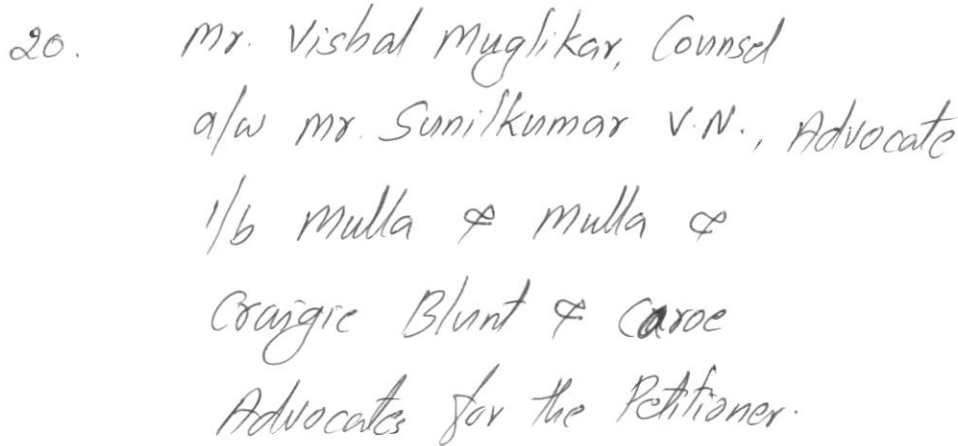 20. Mr. Vishal Muglikar, Counsel
a/w Mr. Sunilkumar V.N., Advocate
i/b Mulla & Mulla &
Craigie Blunt & Caroe
Advocates for the Petitioner.